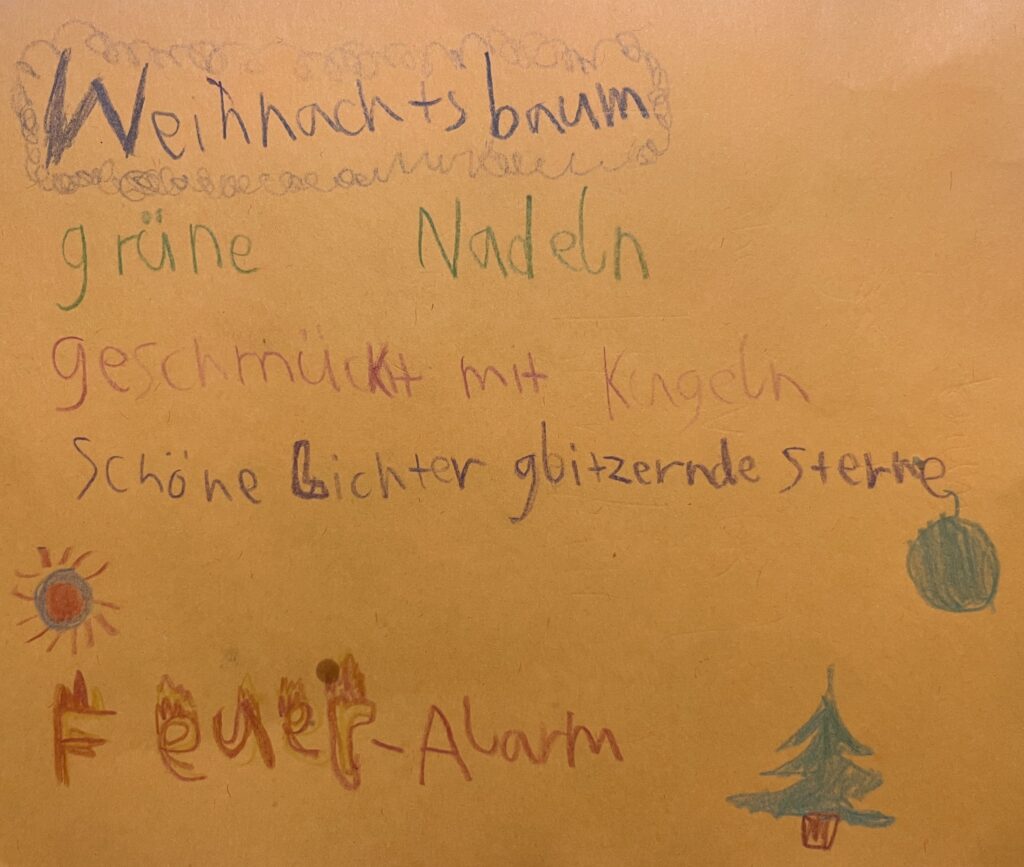 Weihnachtsbaum
grüne Nadeln
geschmückt mit Kugeln
Schöne Lichter glitzernde Sterne
Feuer-Alarm